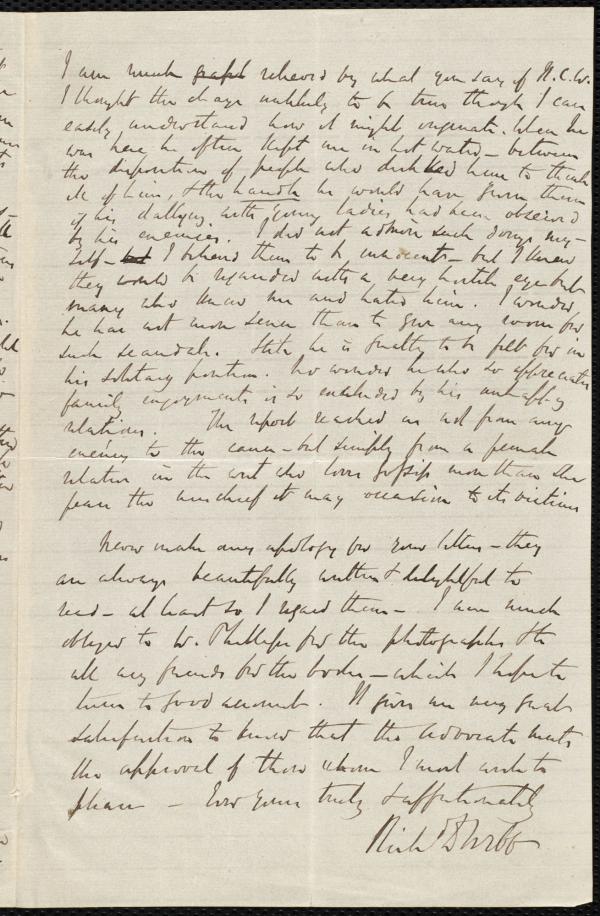 I am much relieved by what you say of H.C.W.
I thought the charge unlikely to be true though I can
easily understand how it might originate. When he
was here he often kept me in hot water – between
the disposition of people who disliked him to think
ill of him, & the handle he would have given them
of his dallying with young ladies had been observed
by his enemies. I did not admire such doings my-
self – but I believed them to be innocent – but I knew
they would be regarded with a very hostile eye by
many who knew me and hated him. I wonder
he has not more sense than to give any room for
such scandals. He is greatly to be felt for in
his solitary position. No wonder he who so appreciates
family enjoyments is so unhappy
relations. The report reached us not from any
enemy to the cause – but simply from a female
relative in the west who loves gossip more than she
fears the mischief it may occasion to its victims
Never make any apology for your letters – they
are always beautifully written & delightful to
read – at least so I regard them – I am much
obliged to W. Phillips for the photographs & to
all my friends for the books – which I hope to
turn to good account. It gives me very great
satisfaction to know that the Advocate meets
the approval of those whom I most wish to
please – Ever yours truly & affectionately
Rich<sup>d</sup> D Webb